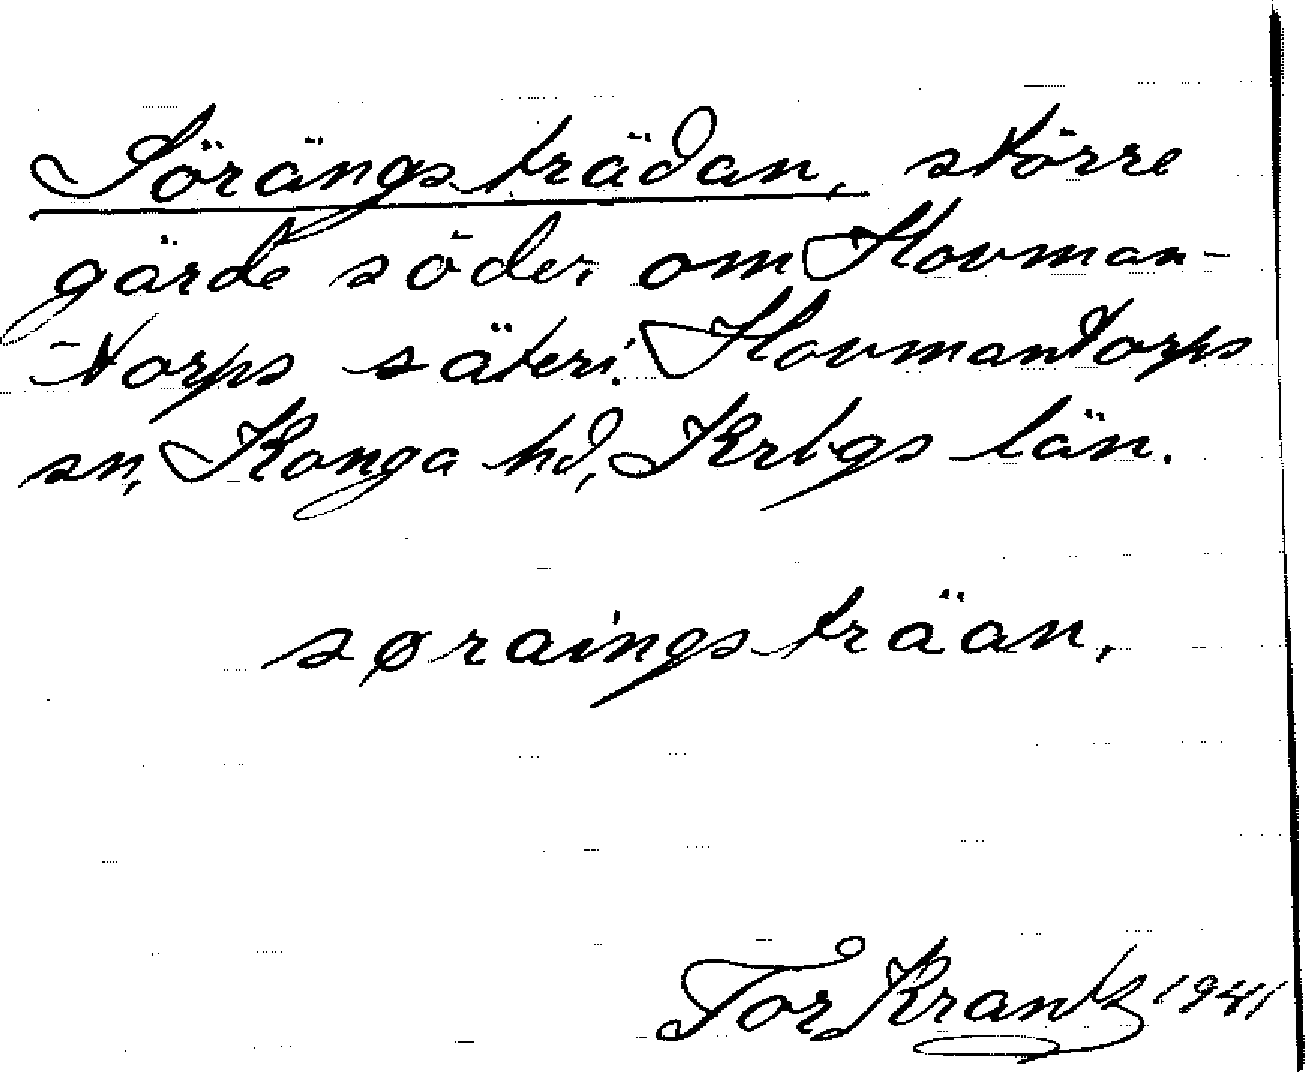 Sörängsträdan, större
gärde söder om Hovman-
torps säteri. Hovmantorps
sn, Konga hd, Krbgs län.
søraingsträan,
Tor Krantz 1941